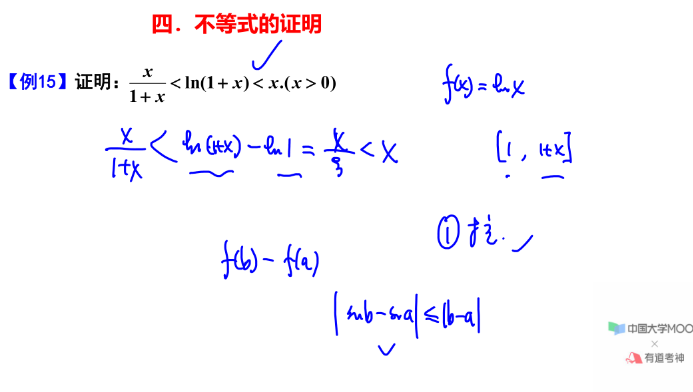 四．不等式的证明
【例15】证明：x/(1+x) < ln(1+x) < x.(x>0)
f(x) = ln x
x/(1+x) < ln(1+x) - ln 1 = x/ξ < x
[1, 1+x]
①拉.
f(b) - f(a)
|sin b - sin a| ≤ |b-a|
中国大学MOO
×
有道考神